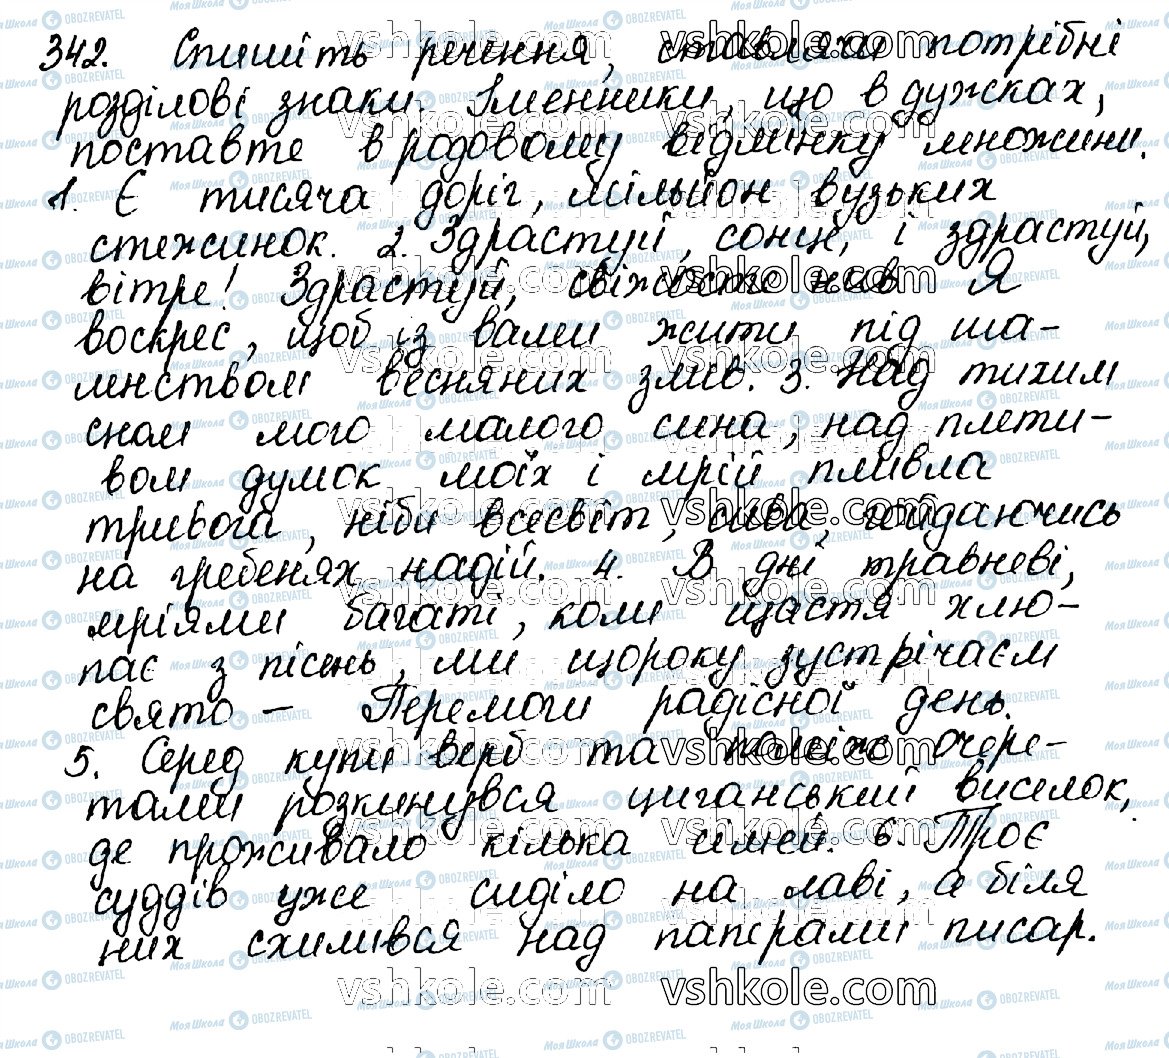 342. Спишіть речення, ставлячи потрібні
розділові знаки. Іменники, що в дужках,
поставте в родовому відмінку множини.
1. Є тисяча доріг, мільйон вузьких
стежинок. 2. Здрастуй, сонце, і здрастуй,
вітре! Здрастуй, свіжосте нив Я
воскрес, щоб із вами жити під ша-
ленством весняних злив. 3. Над тихим
сном мого малого сина, над плети-
вом думок моїх і мрій пливла
тривога, ніби всесвіт, сива, гойдаючись
на гребенях надій. 4. В дні травневі,
мріями багаті, коли щастя хлю-
пає з пісень, ми щороку зустрічаєм
свято – Перемоги радісної день.
5. Серед купи верб та поміж очере-
тами розкинувся циганський виселок,
де проживало кілька сімей. 6. Троє
суддів уже сиділо на лаві, а біля
них схилився над паперами писар.